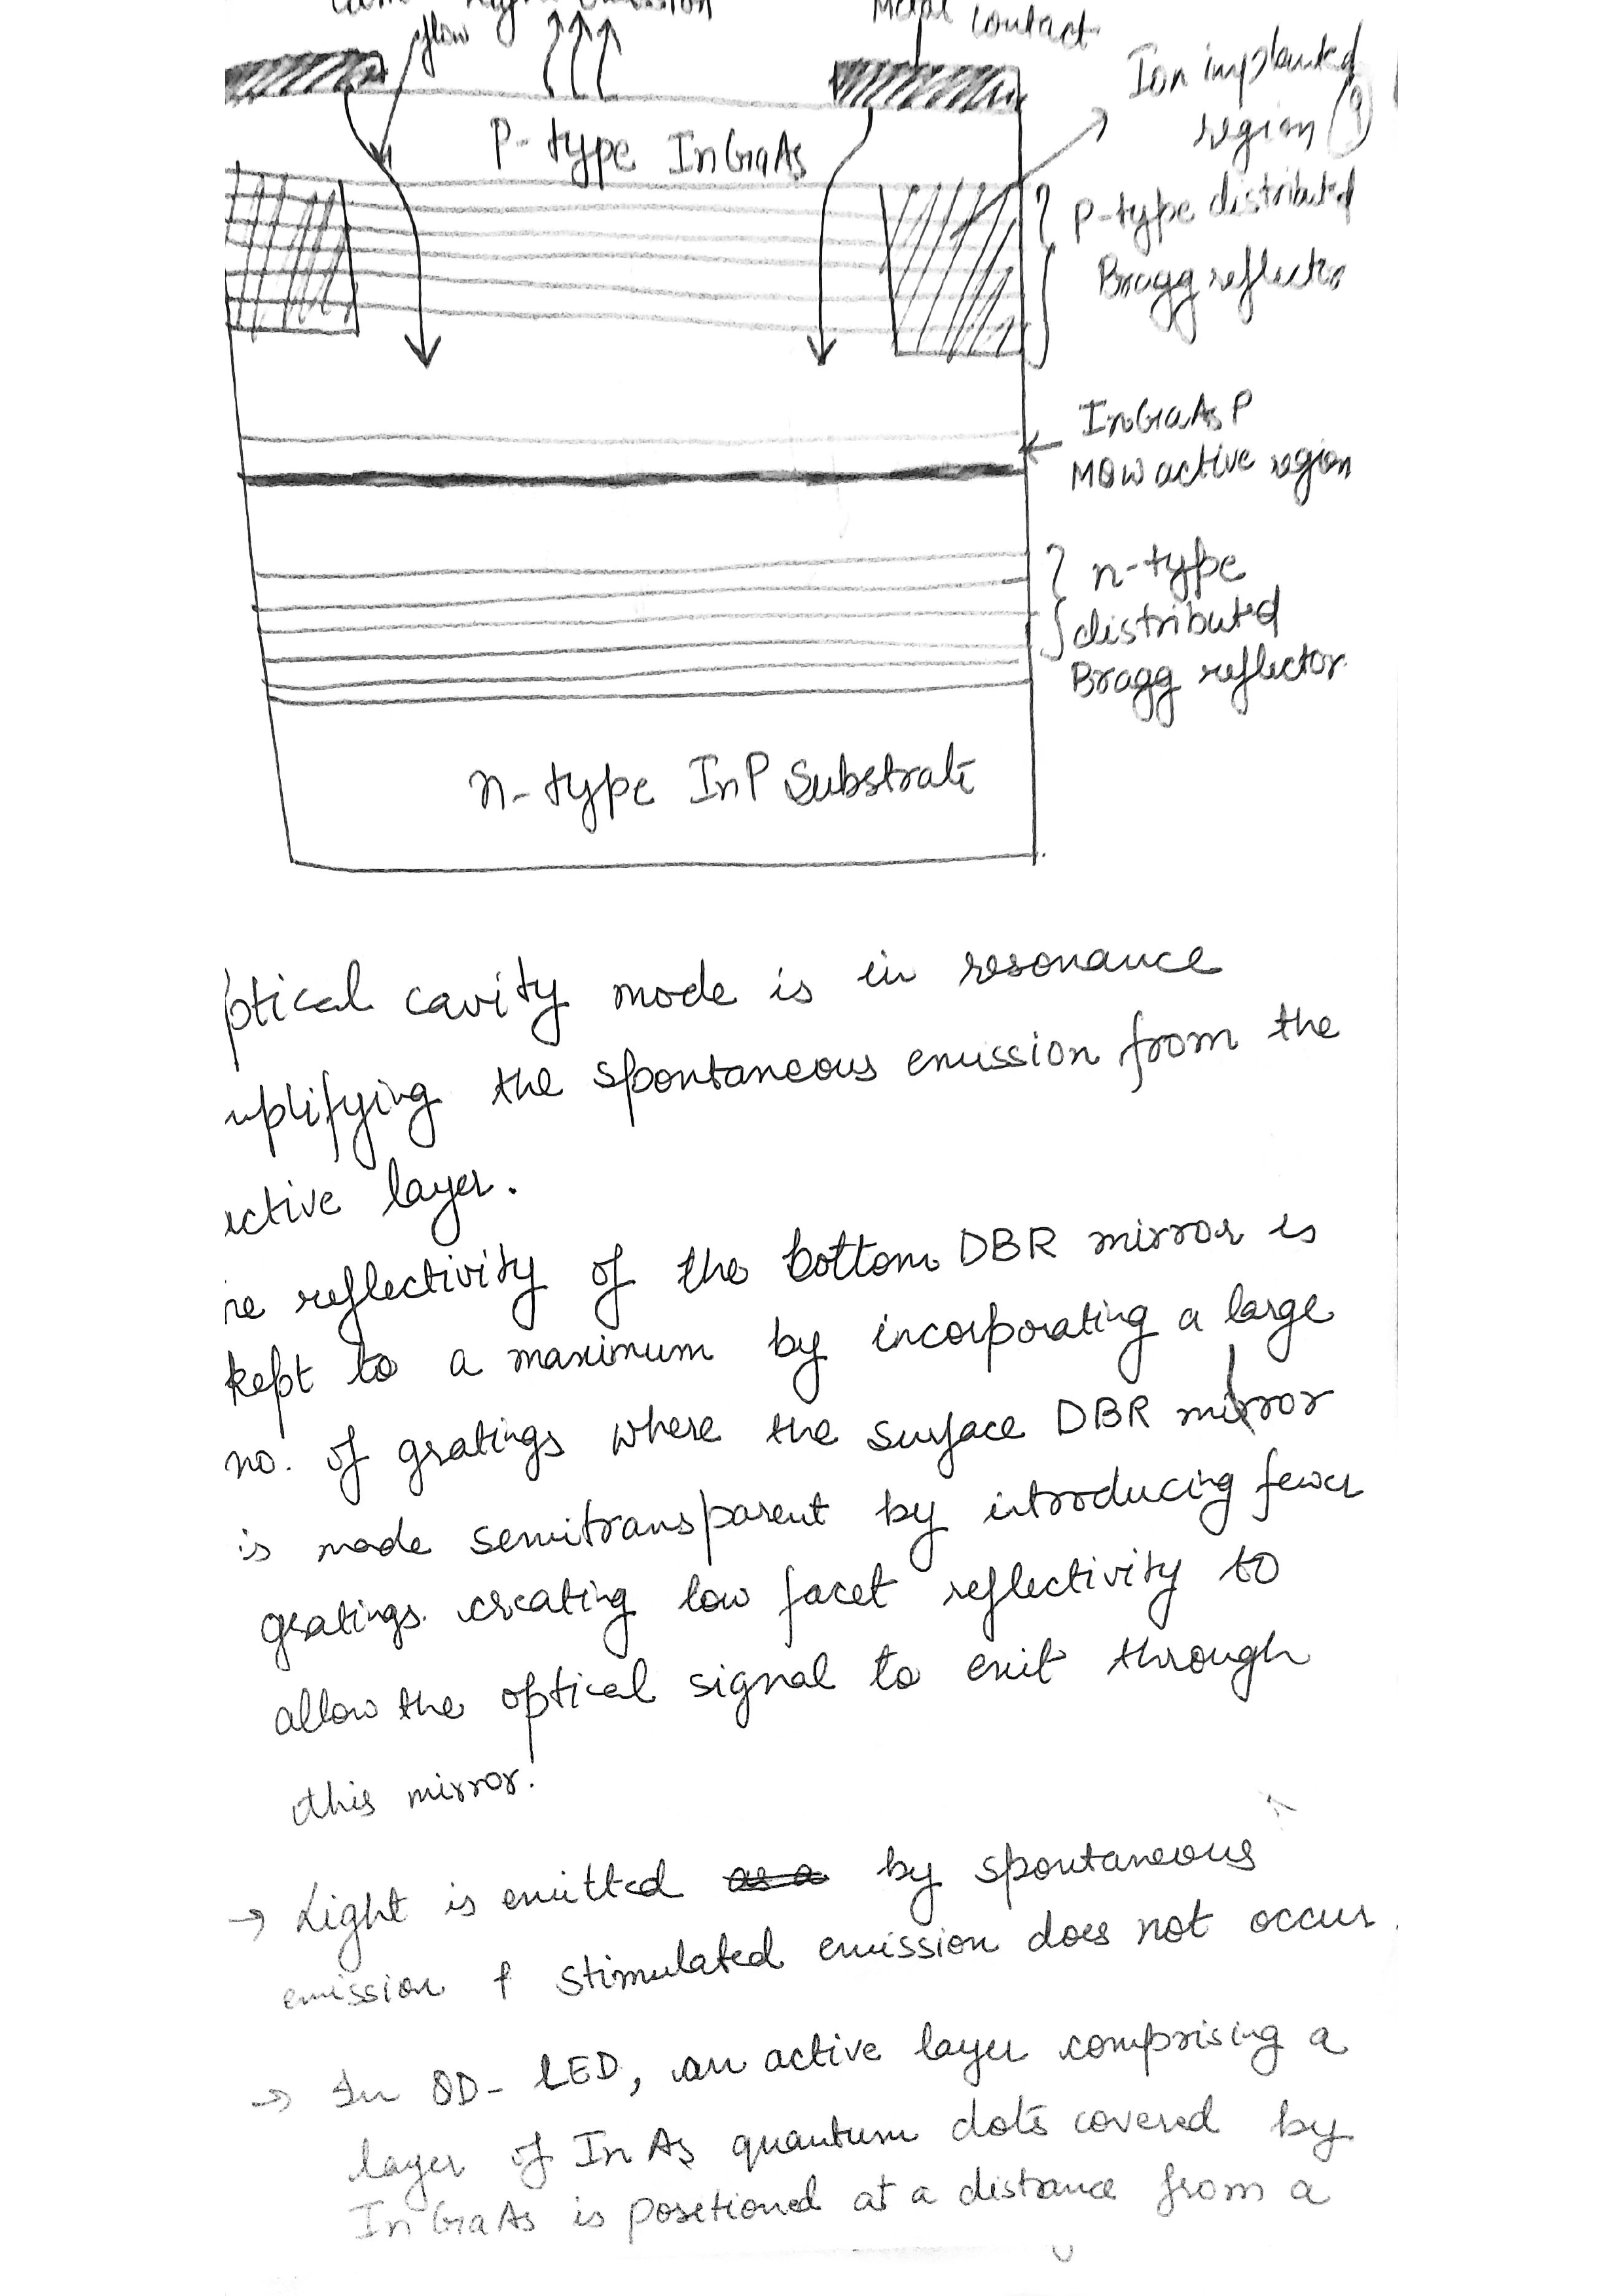 flow
contact
Ion implanted
region
P-type InGaAs
P-type distributed
Bragg reflector
InGaAsP
MQW active region
n-type
distributed
Bragg reflector
n-type InP Substrate
ptical cavity mode is in resonance
mplifying the spontaneous emission from the
active layer.
he reflectivity of the bottom DBR mirror is
kept to a maximum by incorporating a large
no. of gratings where the surface DBR mirror
is made semitransparent by introducing fewer
gratings creating low facet reflectivity to
allow the optical signal to exit through
this mirror.
→ Light is emitted by spontaneous
emission & stimulated emission does not occur.
→ In QD-LED, an active layer comprising a
layer of InAs quantum dots covered by
InGaAs is positioned at a distance from a